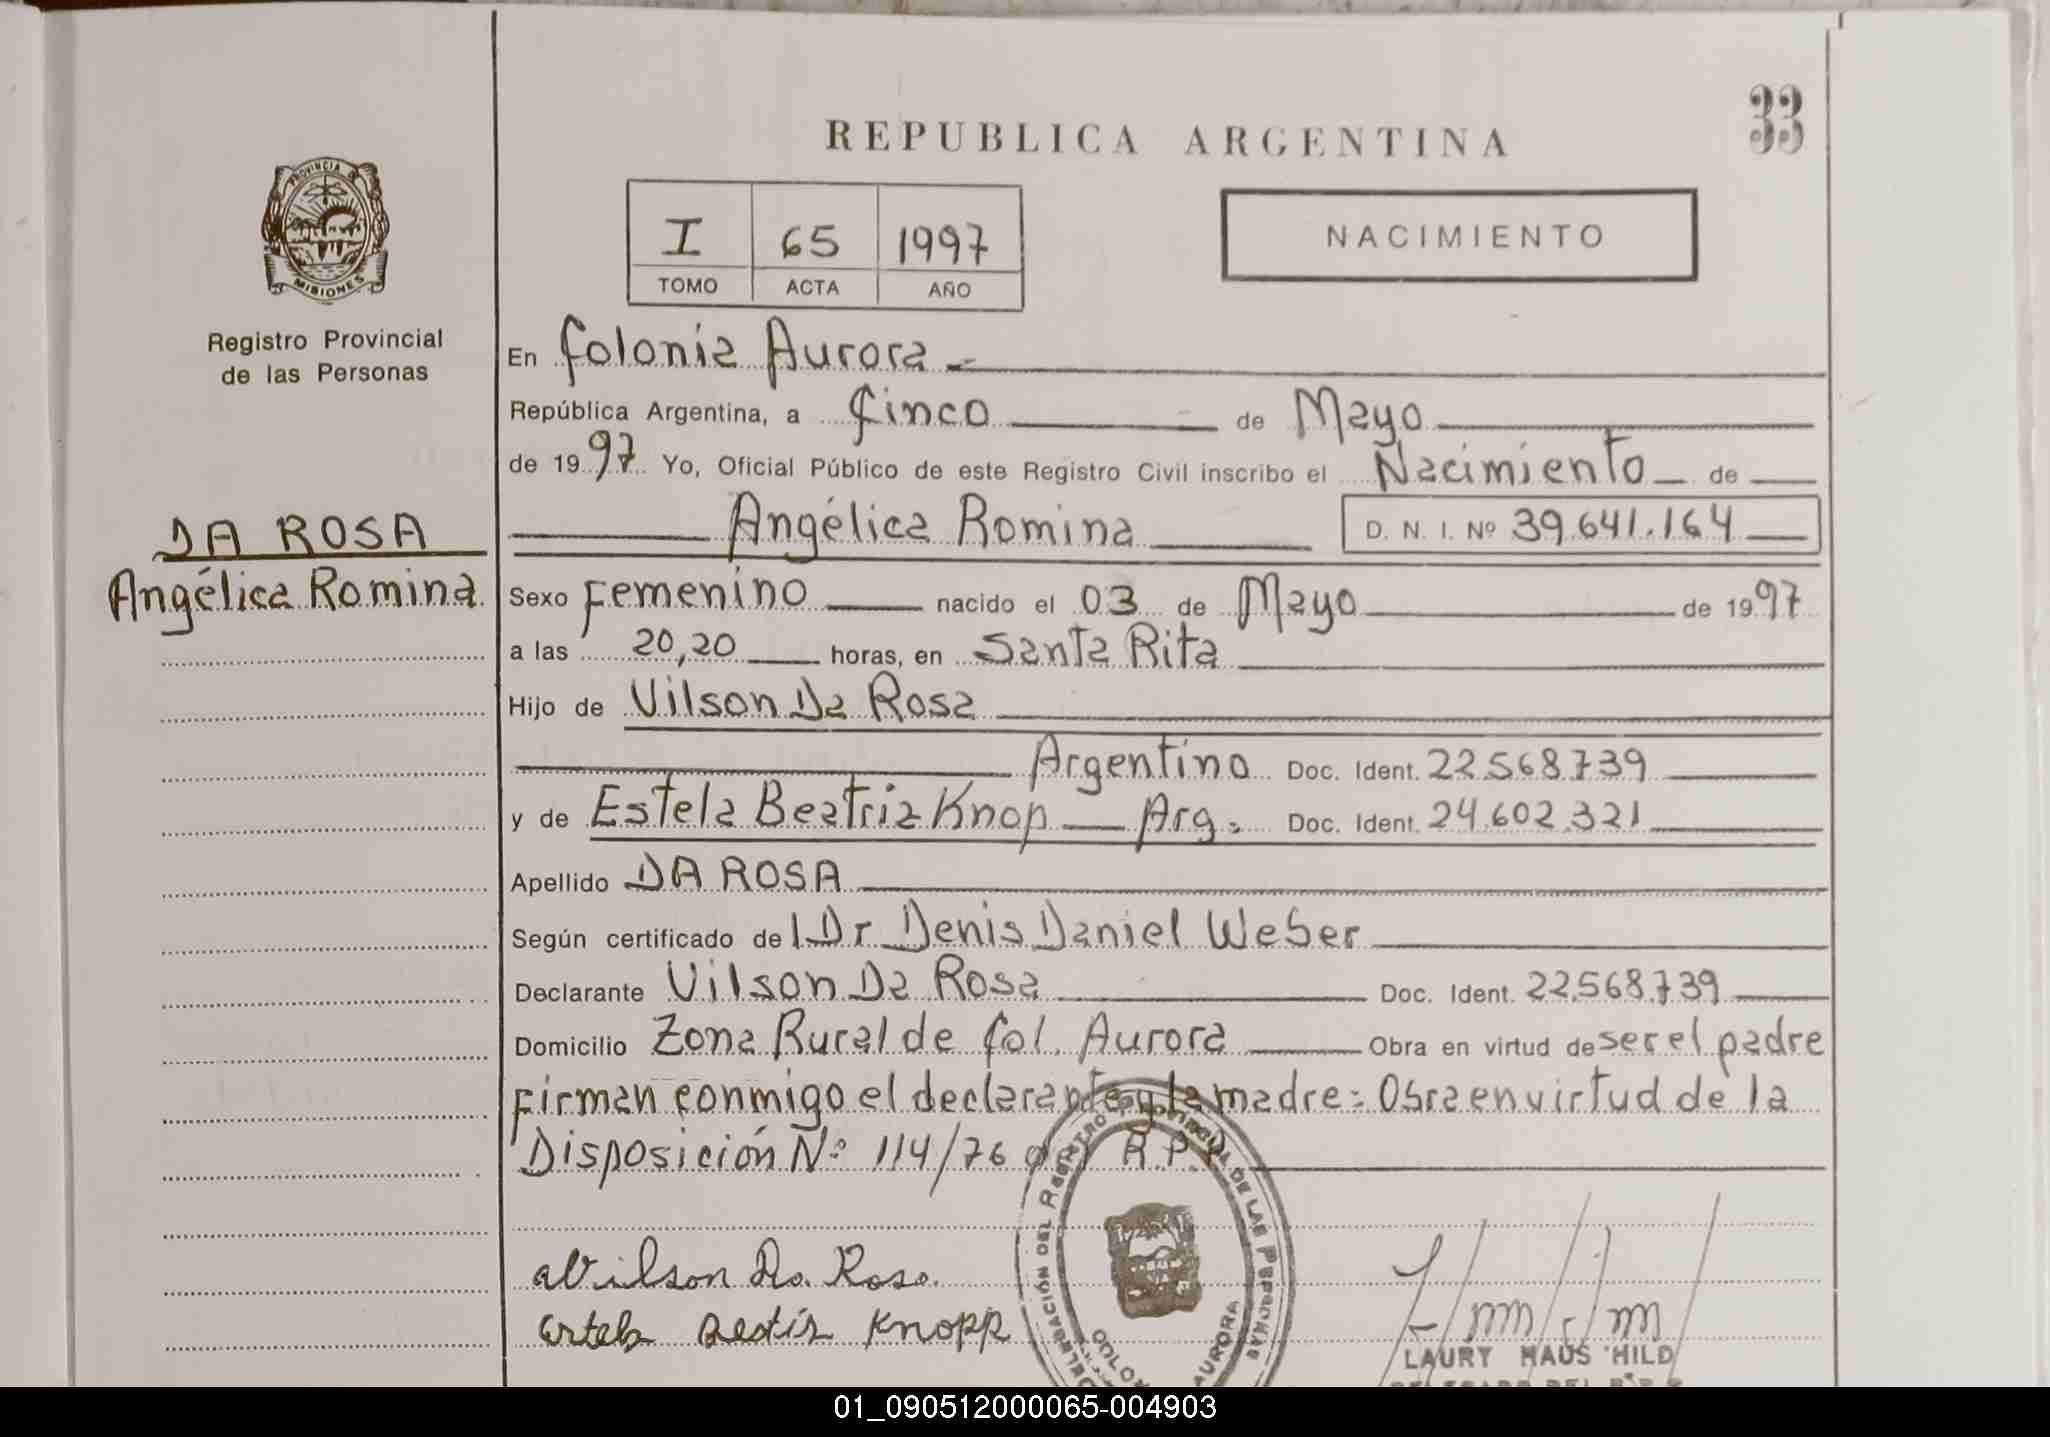 33
REPUBLICA ARGENTINA
PROVINCIA DE
MISIONES
I 65 1997
TOMO ACTA AÑO
NACIMIENTO
Registro Provincial
de las Personas
DA ROSA
Angélica Romina
En Colonia Aurora
República Argentina, a Cinco de Mayo
de 1997 Yo, Oficial Público de este Registro Civil inscribo el Nacimiento de
Angélica Romina D. N. I. Nº 39.641.164
Sexo Femenino nacido el 03 de Mayo de 1997
a las 20,20 horas, en Santa Rita
Hijo de Vilson Da Rosa
Argentino Doc. Ident. 22.568.739
y de Estela Beatriz Knop Arg. Doc. Ident. 24.602.321
Apellido DA ROSA
Según certificado del Dr Denis Daniel Weber
Declarante Vilson Da Rosa Doc. Ident. 22.568.739
Domicilio Zona Rural de Col. Aurora Obra en virtud de ser el padre
Firman conmigo el declarante y la madre: Obra en virtud de la
Disposición Nº 114/76 R.P.P.
Vilson Da. Rosa.
Estela Beatriz Knopp
DELEGACIÓN DEL REGISTRO PROVINCIAL DE LAS PERSONAS
AURORA
LAURY HAUS HILD
01_090512000065-004903